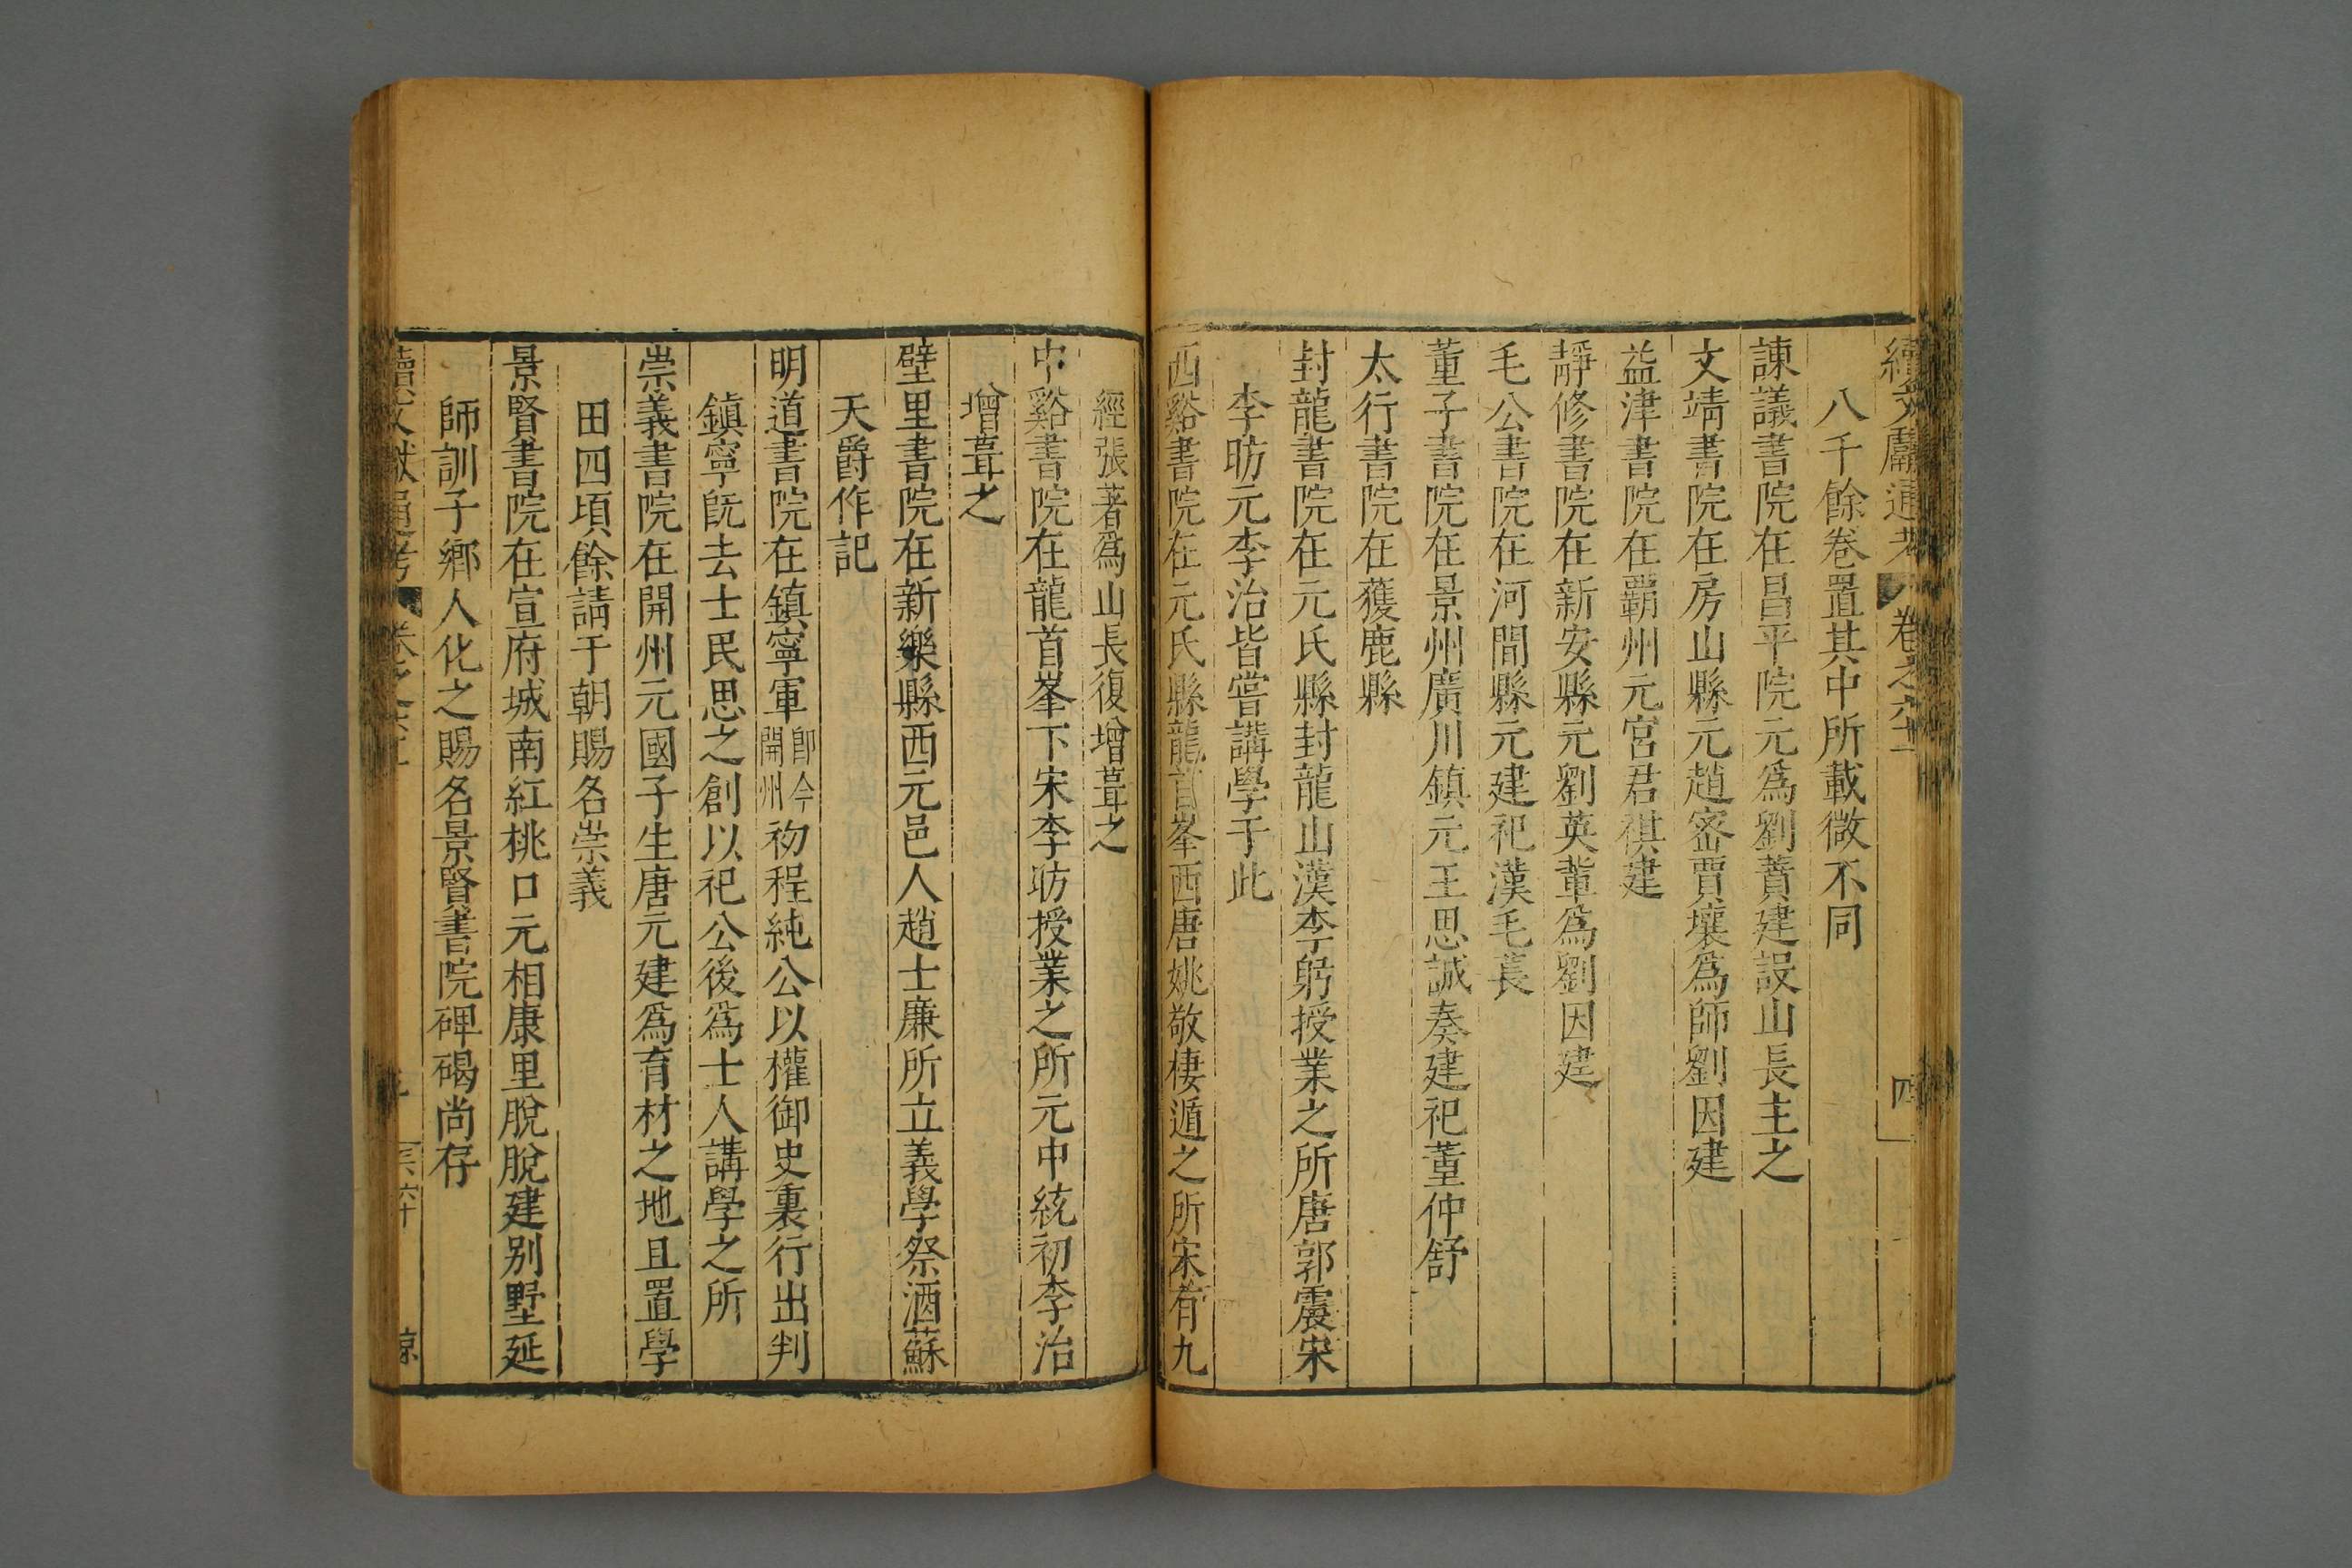 續文獻通考 卷之六十 四
八千餘卷置其中所載微不同
諫議書院在昌平院元爲劉蕡建設山長主之
文靖書院在房山縣元趙密賈壤爲師劉因建
益津書院在覇州元宮君祺建
靜修書院在新安縣元劉英輩爲劉因建
毛公書院在河間縣元建祀漢毛萇
董子書院在景州廣川鎮元王思誠奏建祀董仲舒
太行書院在獲鹿縣
封龍書院在元氏縣封龍山漢李躬授業之所唐郭震宋
李昉元李治皆嘗講學于此
西谿書院在元氏縣龍首峯西唐姚敬棲遁之所宋有九
經張著爲山長復增葺之
中谿書院在龍首峯下宋李昉授業之所元中統初李治
增葺之
壁里書院在新樂縣西元邑人趙士廉所立義學祭酒蘇
天爵作記
明道書院在鎮寧軍卽今開州初程純公以權御史裏行出判
鎮寧旣去士民思之創以祀公後爲士人講學之所
崇義書院在開州元國子生唐元建爲育材之地且置學
田四頃餘請于朝賜名崇義
景賢書院在宣府城南紅桃口元相康里脫脫建别墅延
師訓子鄉人化之賜名景賢書院碑碣尚存
續文獻通考 卷之六十